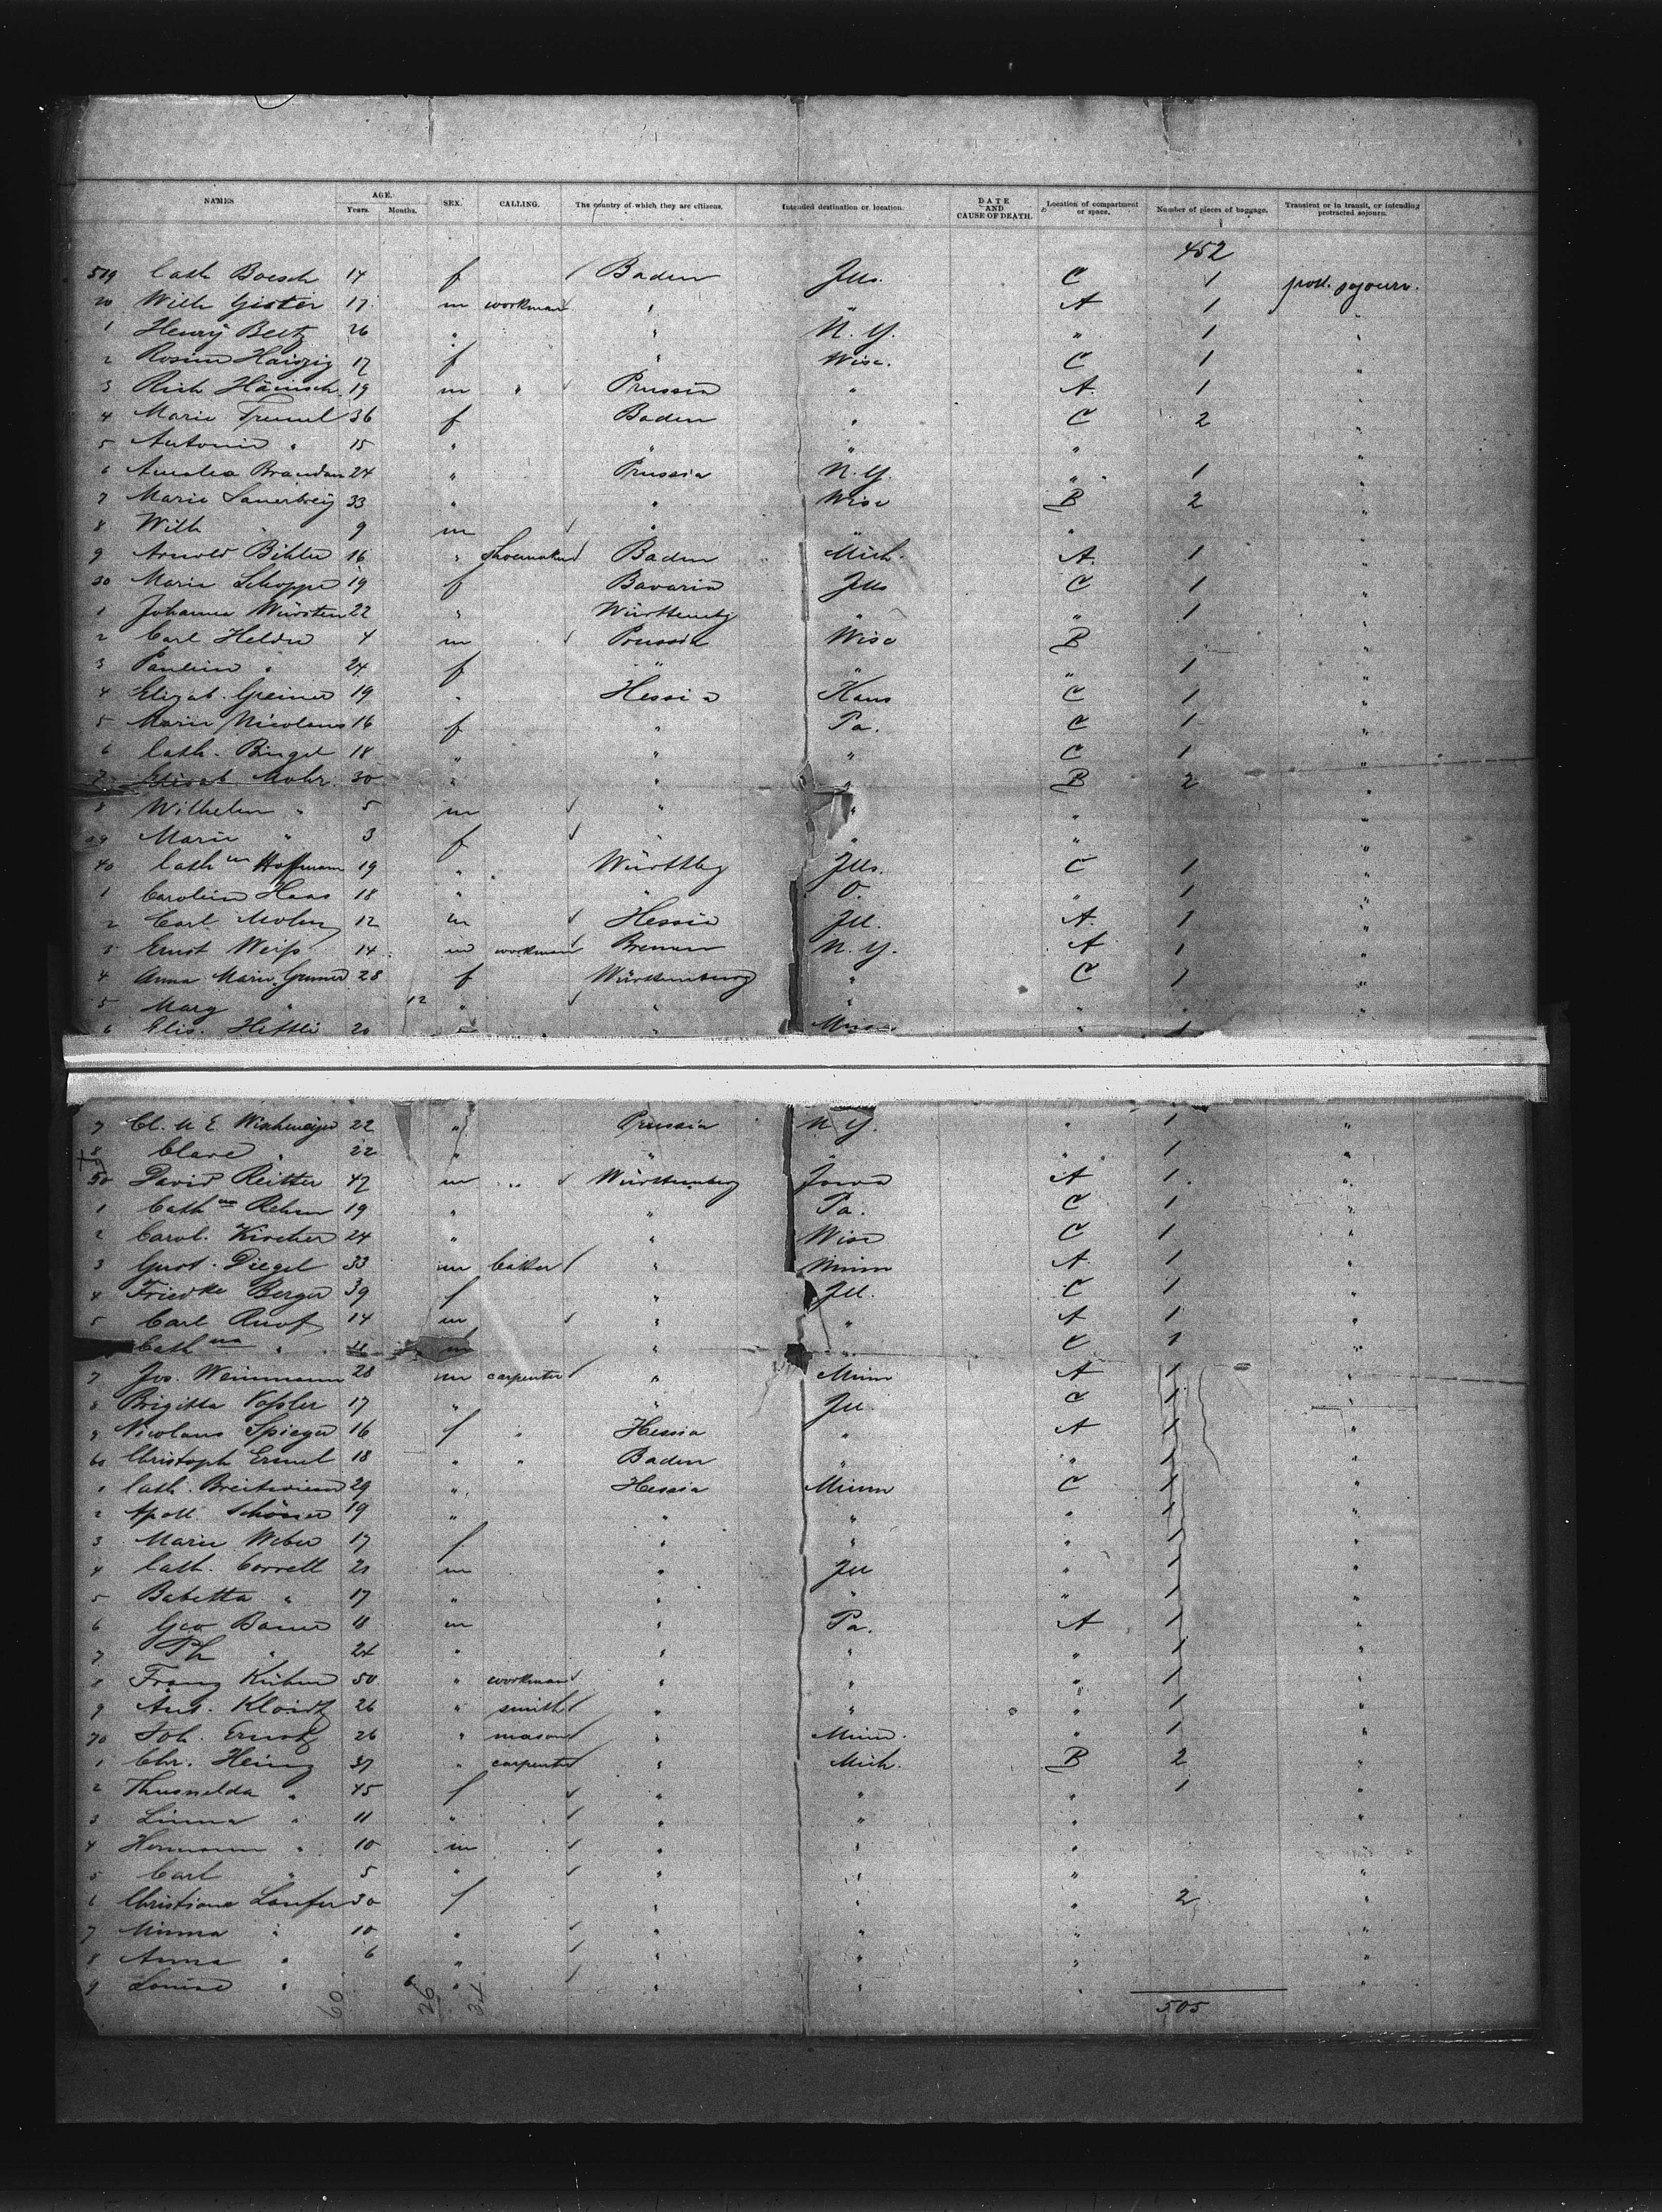 NAMES AGE. Years. Months. SEX. CALLING. The country of which they are citizens. Intended destination or location. DATE AND CAUSE OF DEATH. Location of compartment or space. Number of pieces of baggage. Transient or in transit, or intending protracted sojourn.
452
519 Cath Boesch 14 f Baden Ills. C 1 prot. sojourn.
20 Wilh Gister 17 m workman " " A 1 "
1 Henry Beetz 26 " " N.Y. " 1 "
2 Rosine Haiszig 17 f " Wisc. C 1 "
3 Rich Hänisch 19 m " Prussia " A. 1 "
4 Marie Tremel 36 f Baden " C 2 "
5 Antonie " 15 " " " " "
6 Amalea Brandau 24 " Prussia N.Y. " 1 "
7 Marie Sauerbrey 33 " " Wisc B 2 "
8 Wilh " 9 m " " " "
9 Arnold Bihler 16 " shoemaker Baden Mich. A. 1 "
30 Marie Schoppe 19 f Bavaria Ills C 1 "
1 Johanna Würsten 22 " Württembg " " 1 "
2 Carl Helder 4 m Prussia Wisc B "
3 Pauline " 24 f " " " 1 "
4 Elizab. Greiner 19 " Hessia Kans C 1 "
5 Marie Nicolaus 16 f " Pa. C 1 "
6 Cath. Bingel 18 " " " C 1 "
7 Elisab. Mohr 30 " " " B 2 "
8 Wilhelm " 5 m " " " "
39 Marie " 3 f " " " "
40 Cath na Hoffmann 19 " Württbg Ills. C 1 "
1 Caroline Haas 18 " " O. " 1 "
2 Carl Molny 12 m Hessia Ill. A. 1 "
3 Ernst Weiß 14 m workman Bremen N.Y. A 1 "
4 Anna Marie Gruner 28 f Württemberg " C 1 "
5 Marg " 12 " " " " "
6 Elis. Hettli 20 " " " 1
7 Cl. u E. Wichmeijer 22 " Prussia N.Y. " 1 "
8 Clare " 22 " " " " 1 "
50 David Reitter 47 m " Württemberg Iowa A 1 "
1 Cath na Rehm 19 " " Pa. C 1 "
2 Carol. Kircher 24 " " Wisc C 1 "
3 Gust. Diegel 33 m " Minn A. 1 "
4 Friedke Berger 39 f " Ill. C 1 "
5 Carl Ruof 14 m " " A 1 "
Cath na " m " " C 1 "
7 Jos. Weinmann 28 m carpenter " Minn A 1 "
8 Brigitta Voßler 17 " " Ill C 1
9 Nicolaus Spieger 16 f " Hessia " A 1 "
60 Christoph Ermel 18 " " Baden " " 1 "
1 Cath. 29 " Hessia Minn C 1 "
2 Apoll. Schösser 19 " " " " 1 "
3 Marie Weber 17 f " " " 1 "
4 Cath. Correll 21 m " Ill " 1 "
5 Babetta " 17 " " " " 1 "
6 Geo Bauer 18 m " Pa. A 1 "
7 Ph " 24 " " " " 1 "
8 Franz Kühne 50 " workman " " " 1 "
9 Ant. Kloidt 26 " smith " " " 1 "
70 Joh. Ernst 26 " mason " Minn. " 1 "
1 Chr. Heinz 37 " carpenter " Mich. B 2 "
2 Thusnelda " 45 f " " " 1 "
3 Linna " 11 " " " " "
4 Hermann " 10 m " " " "
5 Carl " 5 " " " " "
6 Christiana Laufer 30 f " " " 2 "
7 Minna " 10 " " " " "
8 Anna " 6 " " " " "
9 Louise " 6 " " " "
60 26 34 505